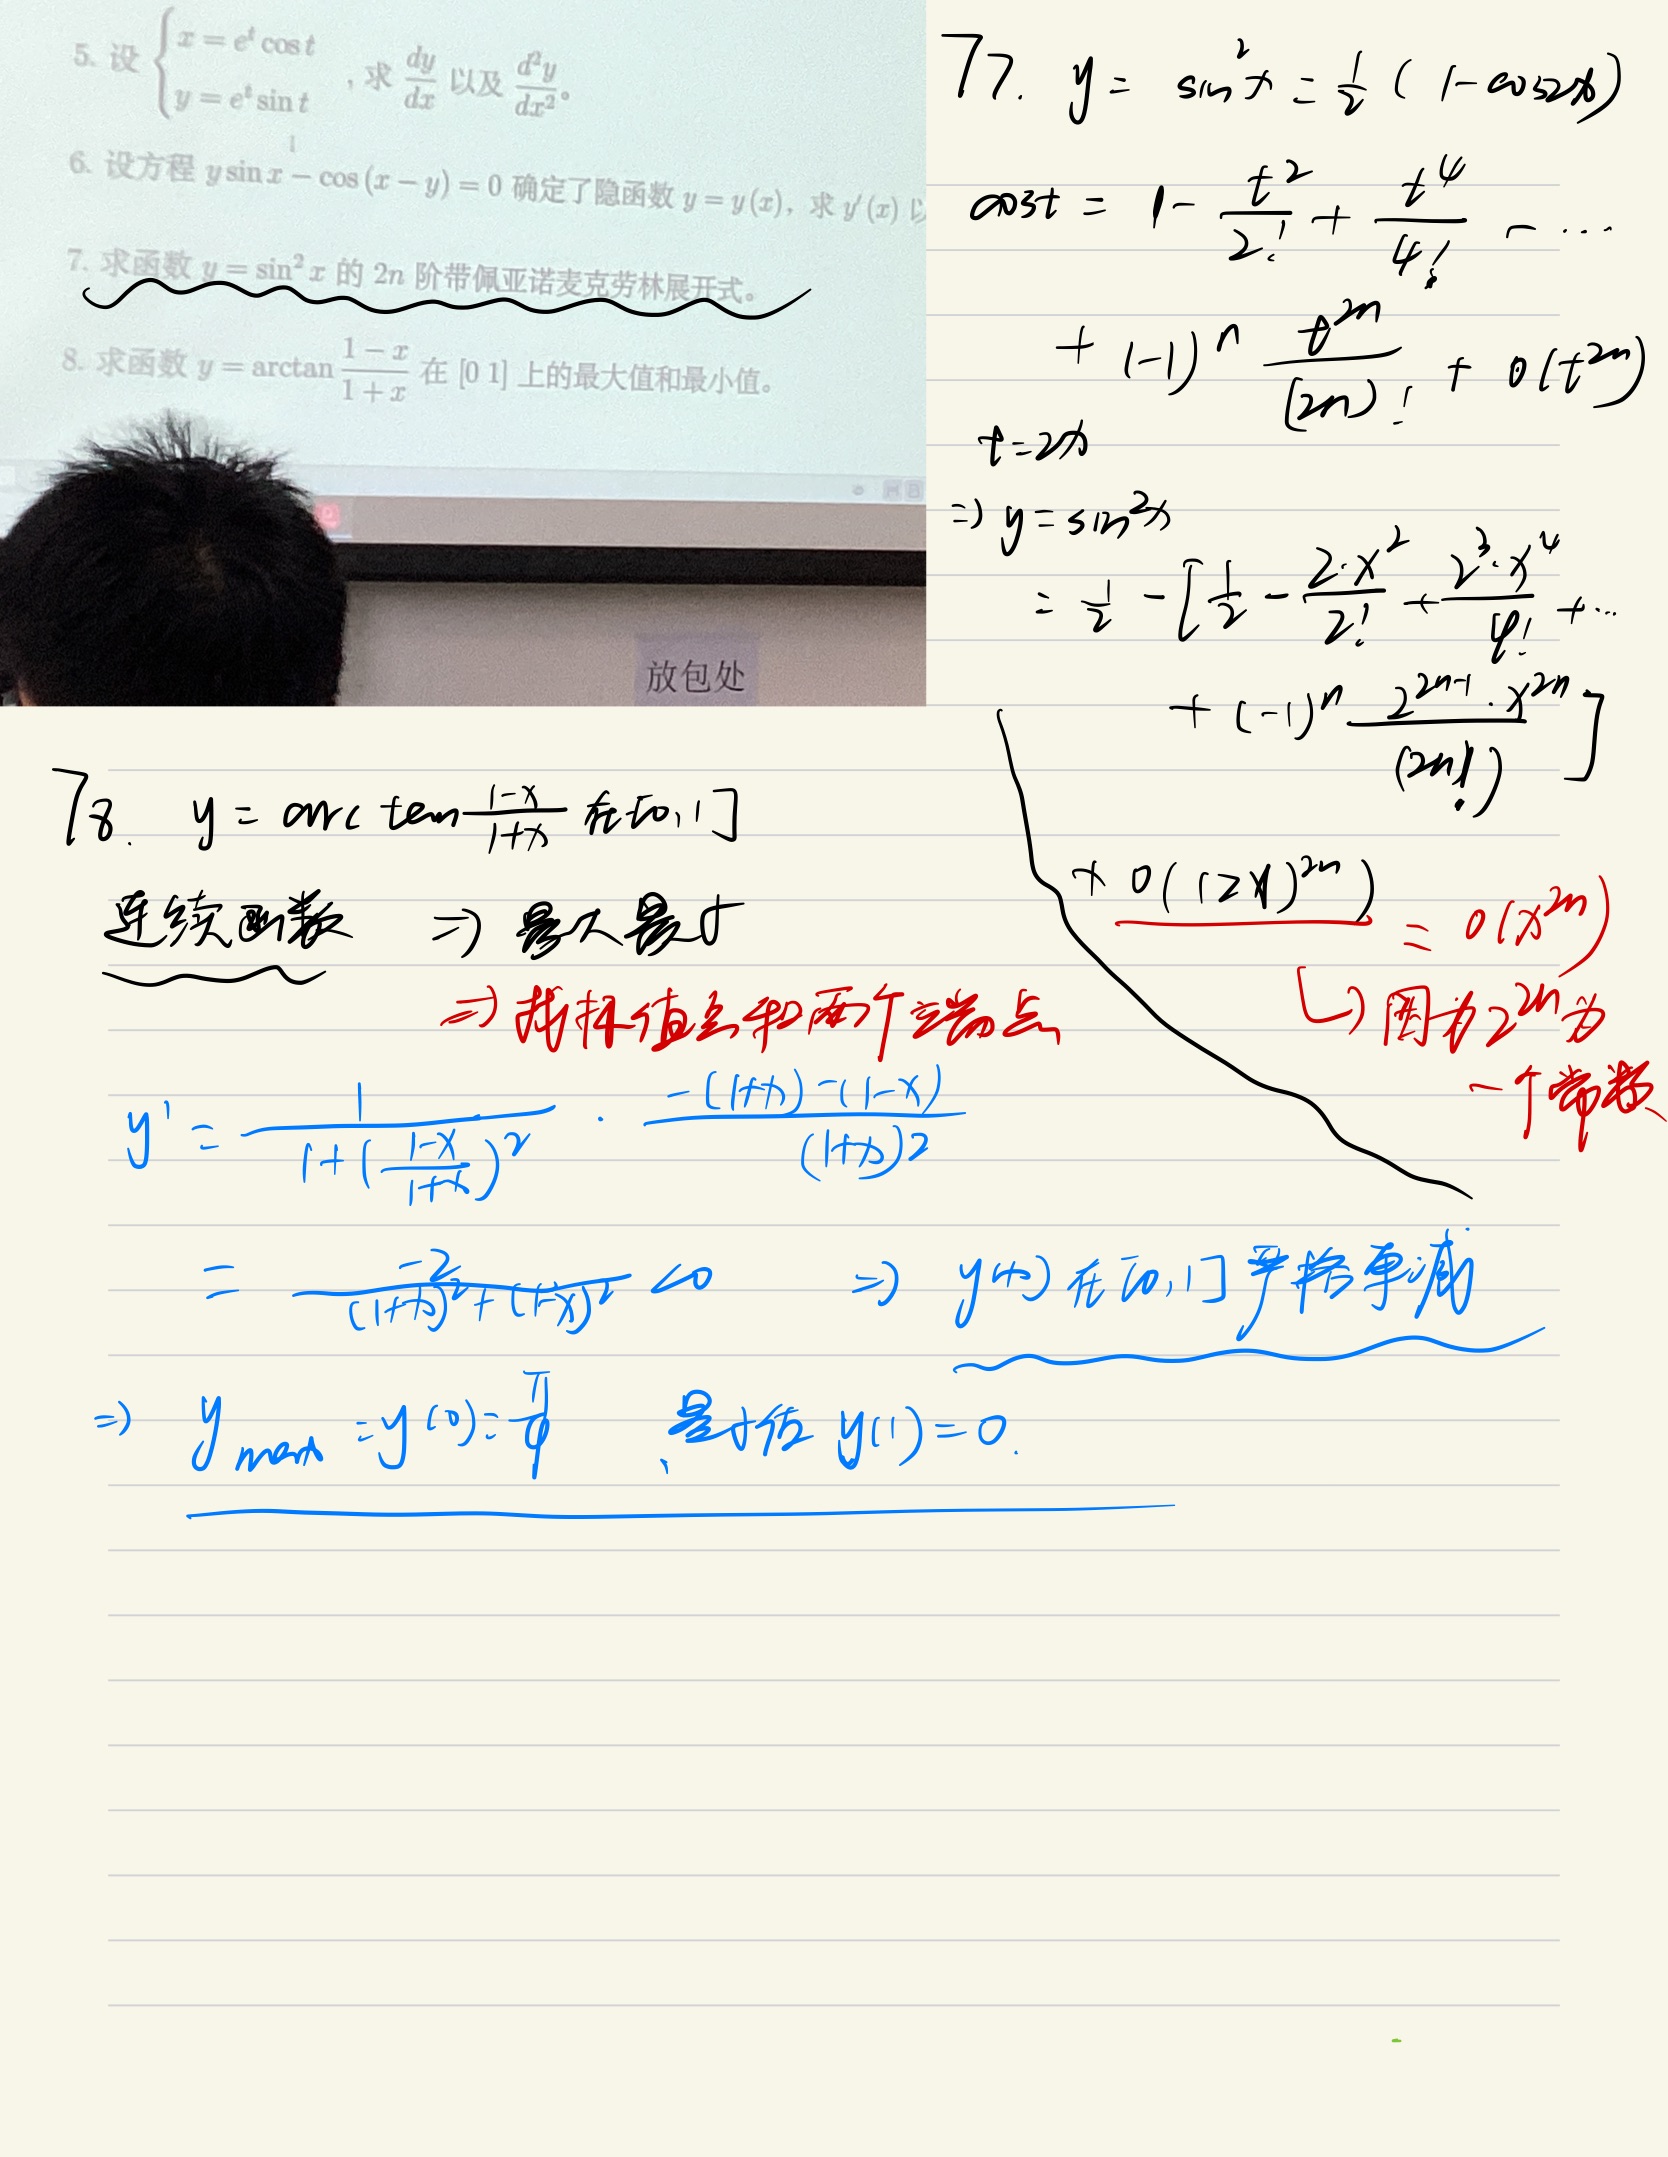 5. 设 { x = e^t cos t
y = e^t sin t , 求 dy/dx 以及 d²y/dx²。
6. 设方程 y sin x − cos (x − y) = 0 确定了隐函数 y = y(x), 求 y′(x) 以
7. 求函数 y = sin² x 的 2n 阶带佩亚诺麦克劳林展开式。
8. 求函数 y = arctan (1 − x)/(1 + x) 在 [0 1] 上的最大值和最小值。
放包处
77. y = sin²x = 1/2 (1-cos2x)
cost = 1 - t²/2! + t⁴/4! - ...
+ (-1)^n t^{2n}/(2n)! + o(t^{2n})
t=2x
⇒ y = sin²x
= 1/2 - [1/2 - 2·x²/2! + 2³·x⁴/4! + ...
+ (-1)^n 2^{2n-1}·x^{2n}/(2n!)]
+ o((2x)^{2n}) = o(x^{2n})
↳ 因为2^{2n}为
一个常数
78. y = arctan (1-x)/(1+x) 在[0,1]
连续函数 ⇒ 最大最小
⇒ 找极值点和两个端点
y' = 1/(1+((1-x)/(1+x))²) · (-(1+x)-(1-x))/(1+x)²
= -2/((1+x)²+(1-x)²) <0 ⇒ y(x)在[0,1]严格单减
⇒ y max = y(0) = π/4 、最小值 y(1)=0.